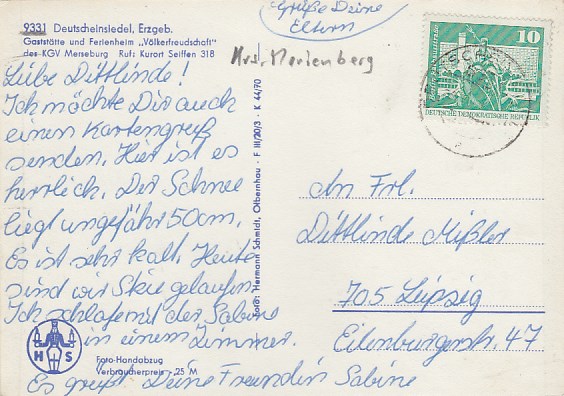 9331 Deutscheinsiedel, Erzgeb.
Gaststätte und Ferienheim „Völkerfreundschaft"
des KGV Merseburg Ruf: Kurort Seiffen 318
Grüße Deine
Eltern
Krs. Marienberg
10
DEUTSCHE DEMOKRATISCHE REPUBLIK
Liebe Dittlinde!
Ich möchte Dir auch
einen Kartengruß
senden. Hier ist es
herrlich. Der Schnee
liegt ungefähr 50cm.
Es ist sehr kalt. Heute
sind wir Skie gelaufen.
Ich schlafe mit der Sabine
in einem Zimmer.
Es grüßt Deine Freundin Sabine
H S
Foto-Handabzug
Verbraucherpreis -,25 M
Foto: Hermann Schmidt, Olbernhau - F III/20/3 - K 44/70
An Frl.
Dittlinde Mißler
705 Leipzig
Eilenburgerstr. 47